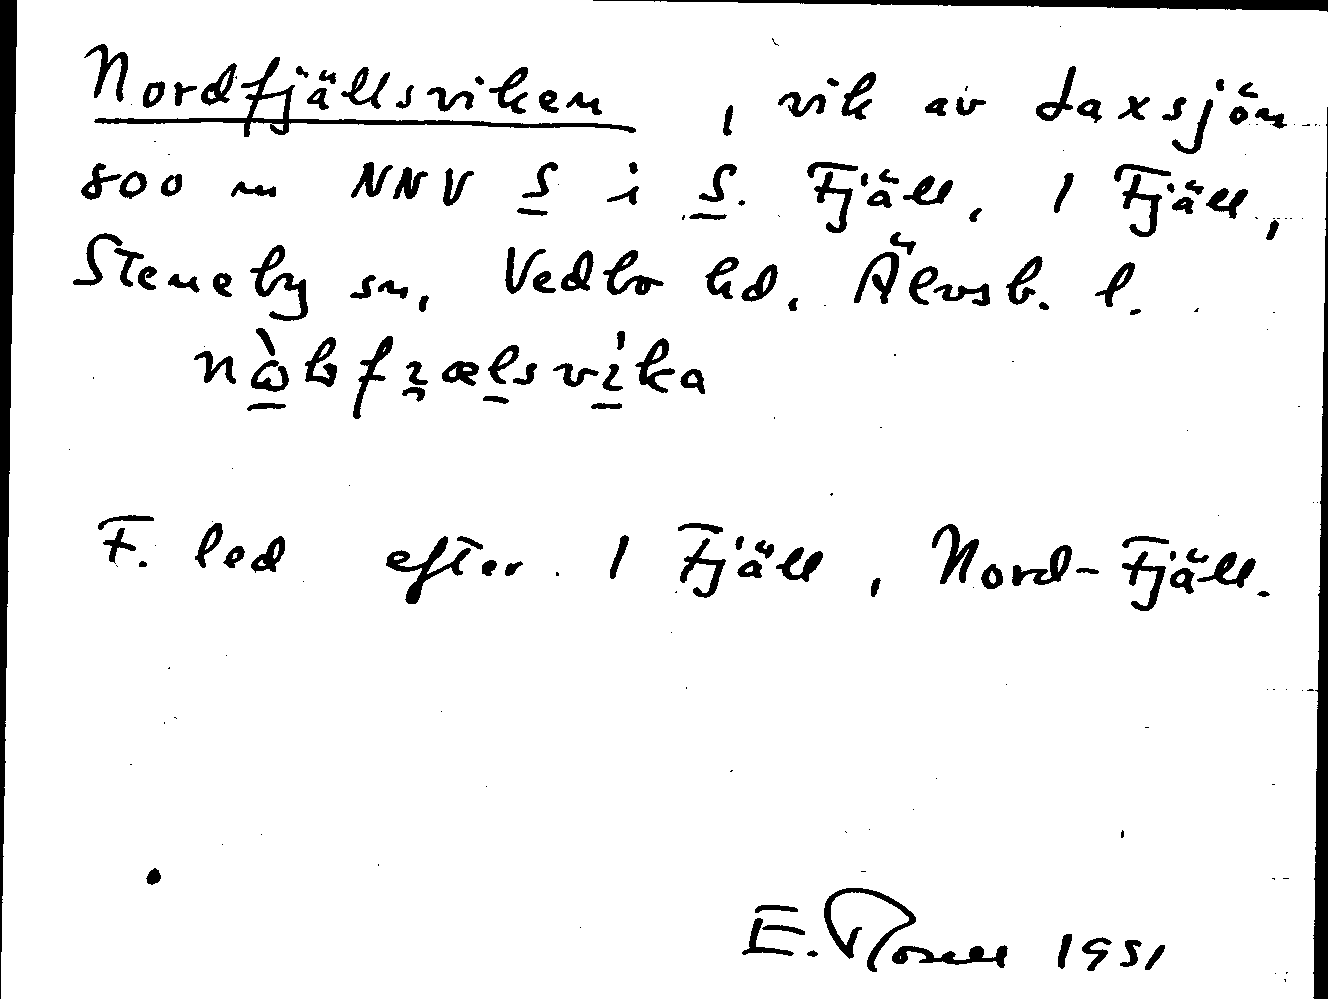 Nordfjällsviken, vik av Laxsjön
800 m NNV S i S. Fjäll, 1 Fjäll,
Steneby sn, Vedbo hd. Älvsb. l.
F. led efter 1 Fjäll, Nord-Fjäll.
E. Rosell 1951